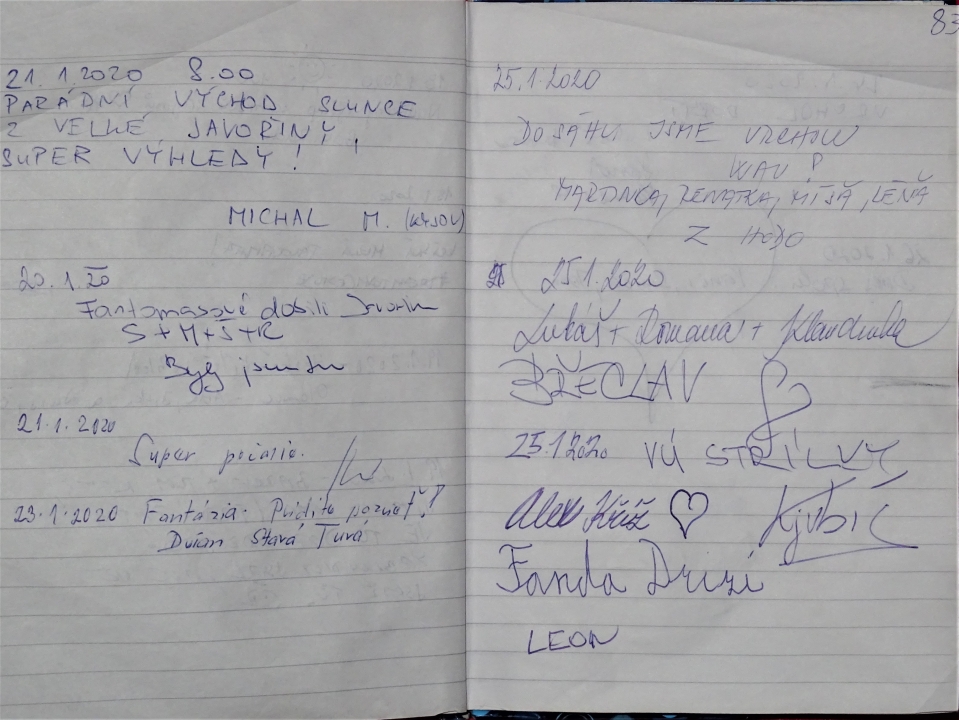 21. 1. 2020 8.00
PARÁDNÍ VÝCHOD SLUNCE
Z VELKÉ JAVOŘINY,
SUPER VÝHLEDY!
MICHAL M. (KYJOV)
20. 1. 20
Fantomasové dobili
S + M + Š + R
Byly jsme tu
21. 1. 2020
Super počasie.
23. 1. 2020 Fantázia. Prídite pozrieť!
Dušan Stará Turá
83
25.1.2020
DOSÁHLI JSME VRCHOLU
WAU!
MARTINKA, RENATKA, MÍŠA, LÉŇA
Z HODO
25.1.2020
Lukáš + Romana + Klaudinka
BŘECLAV
25.1.2020 VÚ STRÍLKY
Alex Kříž Kjubić
Fanda Drizi
LEON